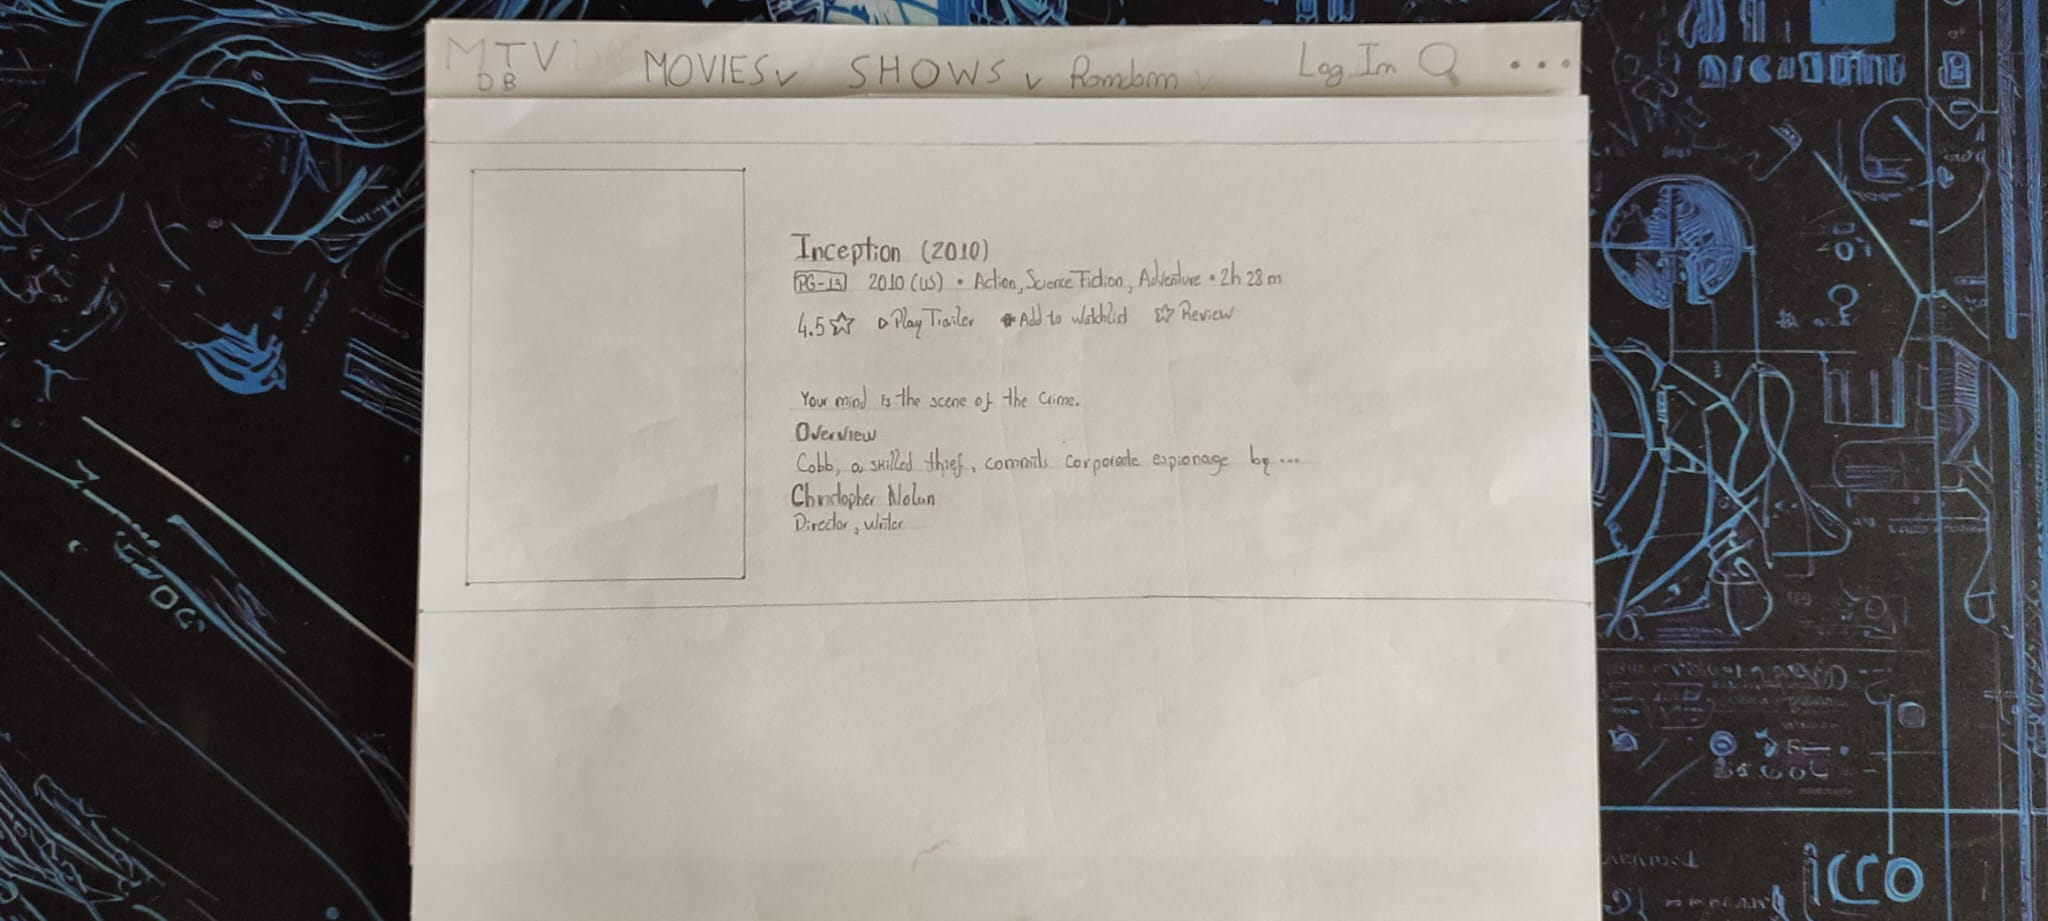 MTV
DB
MOVIES SHOWS Random Log In
Inception (2010)
PG-13 2010 (US) • Action, Science Fiction, Adventure • 2h 28m
4.5 Play Trailer Add to Watchlist Review
Your mind is the scene of the crime.
Overview
Cobb, a skilled thief, commits corporate espionage by ...
Christopher Nolan
Director, Writer
icro